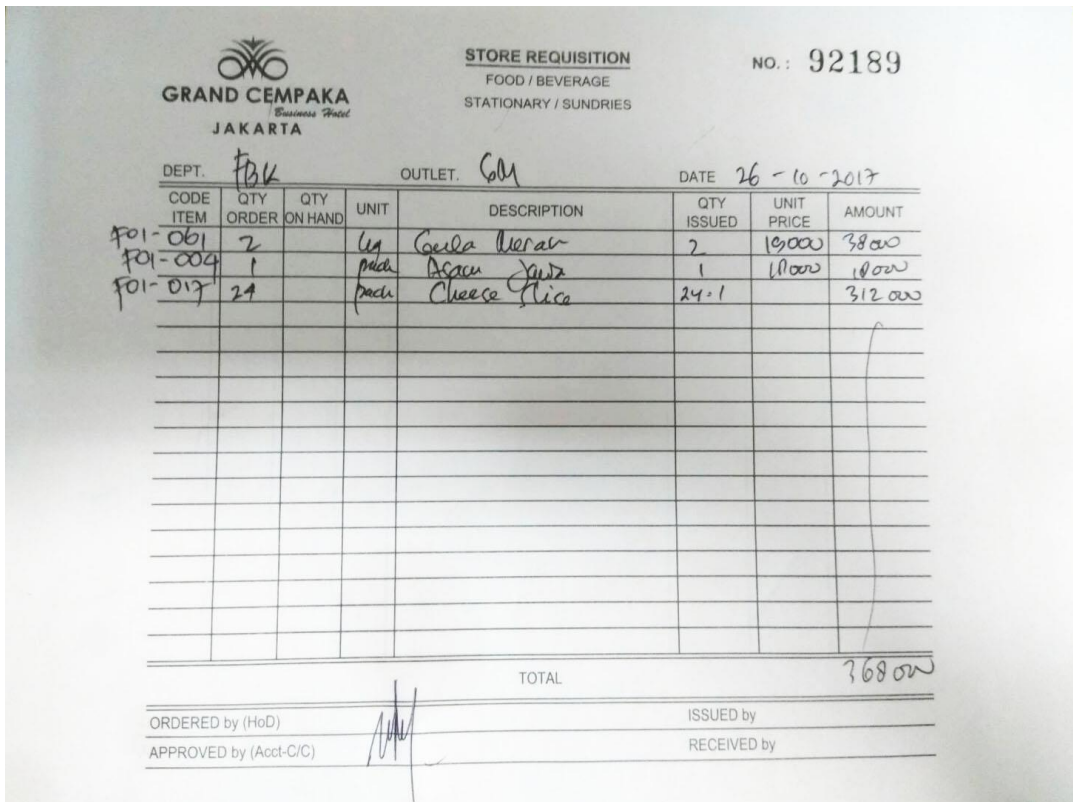 GRAND CEMPAKA
Business Hotel
JAKARTA
STORE REQUISITION
FOOD / BEVERAGE
STATIONARY / SUNDRIES
NO. : 92189
DEPT. FBK OUTLET. GM DATE 26 - 10 - 2017
CODE ITEM QTY ORDER QTY ON HAND UNIT DESCRIPTION QTY ISSUED UNIT PRICE AMOUNT
F01-061 2 kg Gula Merah 2 19000 38000
F01-004 1 pack Asam Jawa 1 18000 18000
F01-017 24 pack Cheese Slice 24.1 312 000
TOTAL 368 000
ORDERED by (HoD) ISSUED by
APPROVED by (Acct-C/C) RECEIVED by